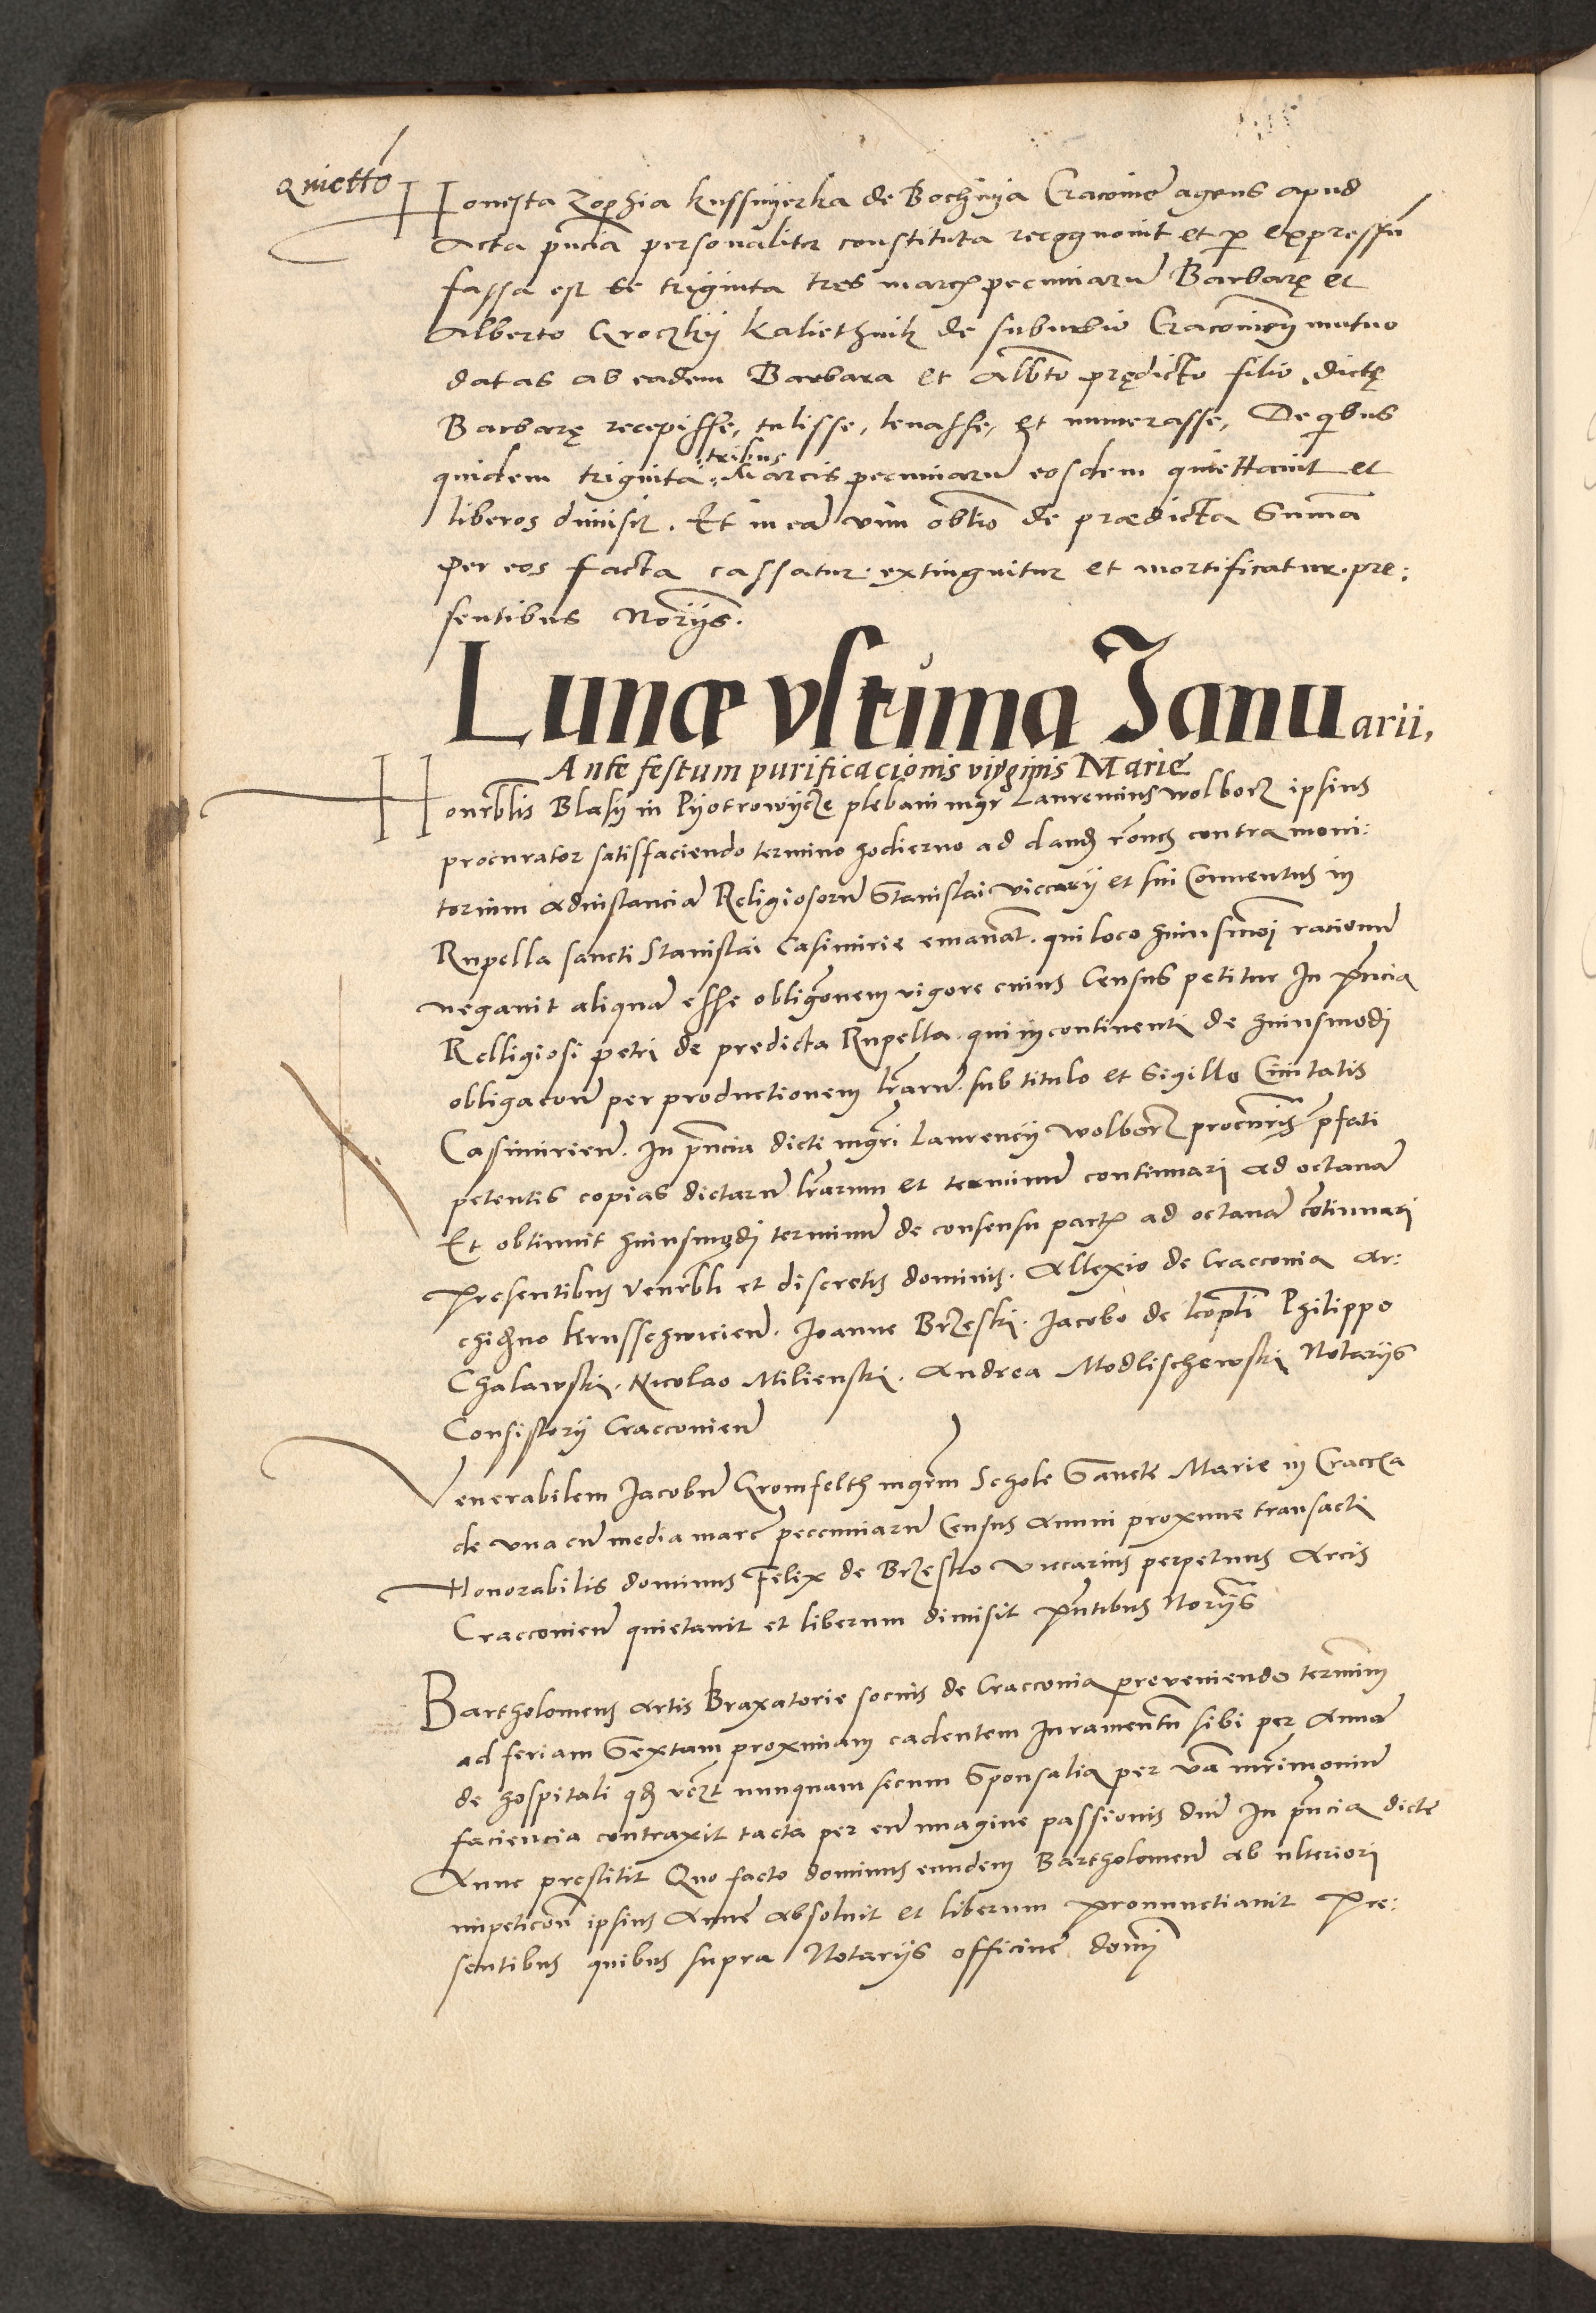 Quietto
Honesta Zophia Kussnyerka de Bochnya Cracovie agens apud
Acta pñcia personaliter constituta recognovit et p expressũ
fassa est se triginta tres march pecuniarũ Barbarę et
Alberto Groczky Kaliethnik de suburbio Cracovieñ mutuo
datas ab eadem Barbara et Albto prędicto filio dictę
Barbarę recepisse, tulisse, levasse, et numerasse, De qbus
quidem triginta tribus Marcis pecuniarũ eosdem quiettavit et
liberos dimisit. Et in eã vim oblto de praedicta Sumã
per eos facta cassatur extinguitur et mortificatur. pre:
sentibus Noriis.
Lunæ vltima Januarii,
Ante festum purificacionis virginis Marie
Honrblis Blasy in Pyotrowycze plebani mgr Laurencius Wolborz ipsius
procurator satisfaciendo termino hodierno ad dand rõnes contra moni:
torium ad instanciã Religiosorũ Stanislai viccarii et sui Conventus in
Rupella sancti Stanislai Casimirie emanat. qui loco huiusmoi rationũ
negavit aliquã esse obligãonem vigore cuius Census petitur In pñcia
Relligiosi petri de predicta Rupella. qui in continenti de huiusmodi
obligacone per productionem lrarũ. sub titulo et Sigillo Civitatis
Cassimirieñ. In pñcia dicti mgri Laurencii Wolborz procuris pfati
petentis copias dictarũ lrarum et terminũ continuari ad octavã
Et obtinuit huiusmodi terminũ de consensu part ad octavã cõtinuari
presentibus Venrbli et discretis dominis. Allexio de Cracconia Ar:
chidno Krusschwicieñ. Joanne Brzeski. Jacobo de Leopli Philippo
Chalawski. Nicolao Milienski. Andrea Modlischewski Notariis
Consistorii Cracconieñ
Venerabilem Jacobũ Gromfelth mgrm Schole Sancte Marie in Cracca
de una cũ media marc peccuniarũ Census anni proxime transacti
Honorabilis dominus Felix de Brzesko Vicarius perpetuus Arcis
Cracconieñ quietavit et liberum dimisit pntibus Noriis
Bartholomeus artis Braxatorie socius de Cracconia preveniendo terminũ
ad feriam Sextam proximam cadentem Juramentũ sibi per Annã
de hospitali qd nunquam secum Sponsalia per vã mrimoniũ
faciencia contraxit tacta per eũ imagine passionis dni In pñcia dicte
Anne prestitit Quo facto dominus eundem Bartholomeũ ab ulteriori
impeticõn ipsius Anne absoluit et liberum pronunctiavit Pre:
sentibus quibus supra Notariis officine domi